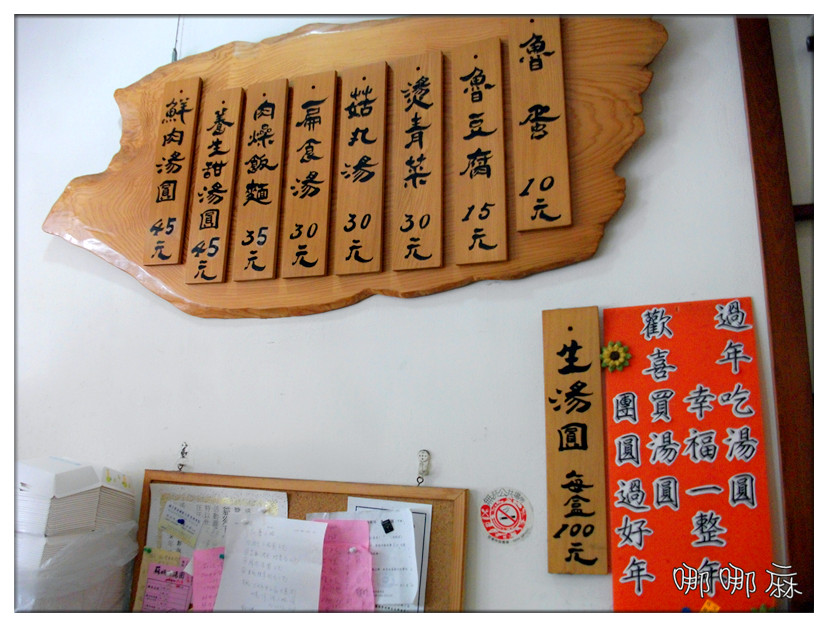 鮮肉湯圓 45元
養生甜湯圓 45元
肉燥飯麵 35元
扁食湯 30元
菇丸湯 30元
燙青菜 30元
魯豆腐 15元
魯蛋 10元
生湯圓 每盒100元
過年吃湯圓
幸福一整年
歡喜買湯圓
團圓過好年
哪哪麻